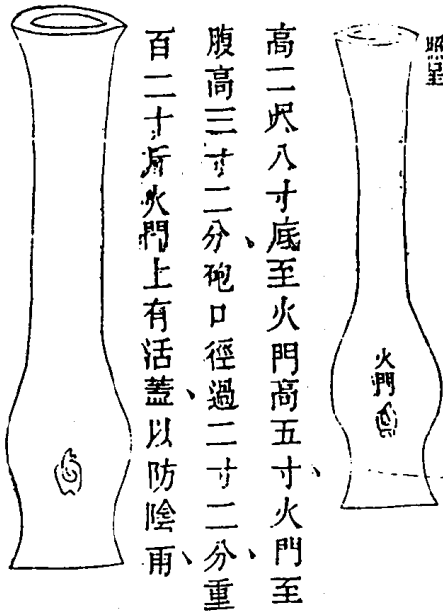 照星
火門
高二呎八寸底至火門高五寸、火門至
腹高三寸二分、砲口徑過二寸二分、重
百二十斤火門上有活蓋、以防陰雨、